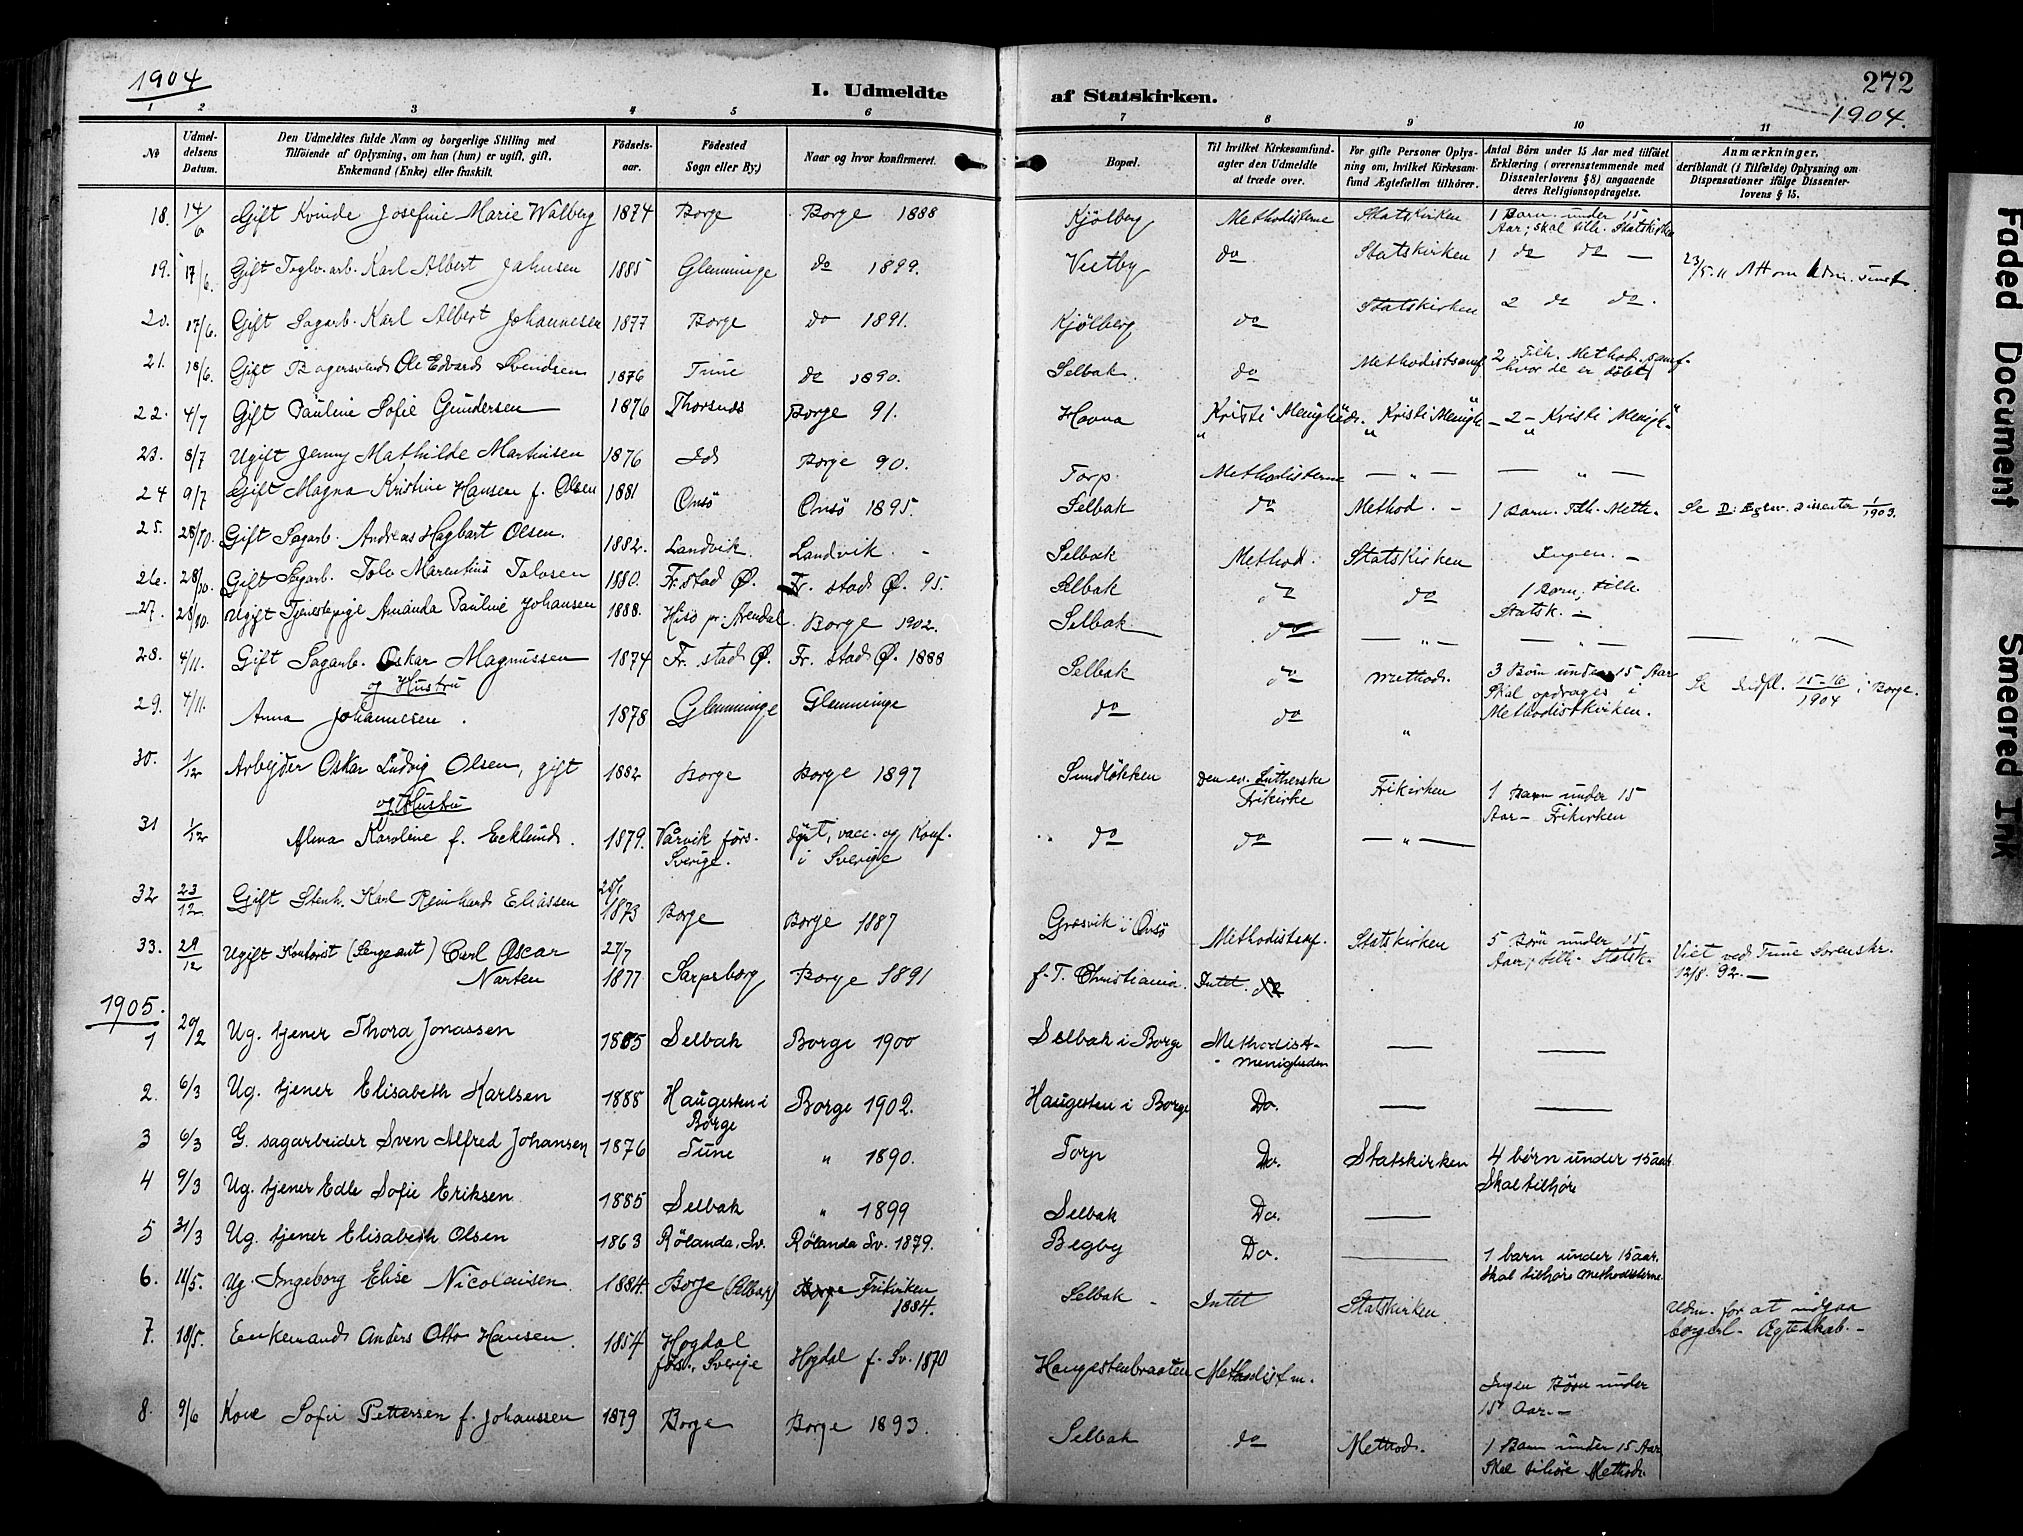 1904
I. Udmeldte af Statskirken.
272
1904.
1 2 3 4 5 6 7 8 9 10 11
No
Udmel-
delsens
Datum.
Den Udmeldtes fulde Navn og borgerlige Stilling med
Tilföiende af Oplysning, om han (hun) er ugift, gift,
Enkemand (Enke) eller fraskilt.
Födsels-
aar.
Födested
Sogn eller By.)
Naar og hvor konfirmeret.
Bopæl.
Til hvilket Kirkesamfund
agter den Udmeldte
at træde over.
For gifte Personer Oplys-
ning om, hvilket Kirkesam-
fund Ægtefællen tilhörer.
Antal Börn under 15 Aar med tilföiet
Erklæring (overensstemmende med
Dissenterlovens § 8) angaaende
deres Religionsopdragelse.
Anmærkninger,
deriblandt (i Tilfælde) Oplysning om
Dispensationer ifölge Dissenter-
lovens § 15.
18. 14/6 Gift Kvinde Josefine Marie Walberg 1874 Borge Borge 1888 Kjölberg Methodisterne Statskirken 1 Barn under 15
Aar; skal tilh. Statskirken
19. 17/6. Gift Teglv.arb. Karl Albert Jahnsen 1885 Glemminge do 1899. Vestby do Statskirken 1 do do — 23/5. 11
20. 17/6. Gift Sagarb. Karl Albert Johannesen 1877 Borge do 1891. Kjölberg do Statskirken 2 do do.
21. 18/6. Gift Bagersvend Ole Edvard Svendsen 1876 Tune do 1890. Selbak. do Methodistsamf. 2 Tilh. Method. samf.
hvor de er döbt
22. 4/7 Gift Pauline Sofie Gundersen 1876 Thorsnes Borge 91. Havna "Kristi Menighed". "Kristi Menigh" – 2 – "Kristi Menigh"
23. 8/7 Ugift Jenny Mathilde Martinsen 1876 Id Borge 90. Torp. Methodisterne — " — — " —
24 9/7 Gift Magna Kristine Hansen f. Olsen 1881 Onsö Onsö 1895. Selbak do Method. - 1 Barn. Tilh. Meth. Se D: Egtev. Dissenter 1/1903.
25. 28/10. Gift Sagarb. Andreas Hagbart Olsen. 1882. Landvik. Landvik. - Selbak Method. Statskirken Ingen. –
26. 28/10. Gift Sagarb. Tolv Marentius Talvsen 1880. Fr.stad Ø. Fr. stad Ø. 95. Selbak do do 1 Barn, tilh.
Statsk. –
27. 28/10. Ugift Tjenestepige Amanda Pauline Johansen 1888. Hisö pr. Arendal. Borge 1902. Selbak do — " — — " — — " —
28. 4/11. Gift Sagarb. Oskar Magnussen 1874 Fr. stad Ø. Fr. stad Ø. 1888 Selbak do Method. 3 Börn under 15 Aar
Skal opdrages i
Methodistkirken. Se Indfl. 15-16/1904 i Borge.
og Hustru
29. 4/11. Anna Johannesen. 1878 Glemminge Glemminge do do "
30. 1/12 Arbejder Oskar Ludvig Olsen, gift 1882 Borge Borge 1897 Sundlökken Den ev. Lutherske
Frikirke Frikirken 1 Barn under 15
Aar – Frikirken
og Hustru
31 1/12 Alma Karoline f. Ecklund. 1879. Vårvik förs.
Sverige. döpt, vacc. og Konf.
i Sverige do do — " —
32 23/12 Gift Stenh. Karl Reinhard Eliassen 1873 Borge Borge 1887 Græsvik i Onsö Methodistsmf. Statskirken 5 Börn under 15
Aar, tilh. Statsk. Viet ved Tune Sorenskr.
12/8. 92. –
33. 29/12 Ugift Kontorist (Sergeant) Carl Oscar
Narten 27/7
1877 Sarpsborg Borge 1891 f. T. Christiania. Intet. do
1905.
1 20/2 Ug. tjener Thora Jonassen 1885 Selbak Borge 1900 Selbak i Borge Methodist-
menigheden — —
2. 6/3 Ug. tjener Elisabeth Karlsen 1888 Haugesten i
Borge Borge 1902. Haugesten i Borge Do. — —
3 6/3 G. sagarbeider Sven Alfred Johansen 1876 Tune " 1890. Torp Do. Statskirken 4 börn under 15 aar
Skal tilhöre
4 9/3 Ug. tjener Edle Sofie Eriksen 1885 Selbak " 1899 Selbak Do. —
5 31/3 Ug. tjener Elisabeth Olsen 1863 Rölanda, Sv. Rölanda Sv. 1879. Begby Do. — 1 barn under 15 aar.
Skal tilhöre Methodisterne
6. 11/5. Ug. Ingeborg Elise Nicolaisen. 1884. Borge (Selbak) Borge Frikirken
1884. Selbak - Intet Statskirken. Udm. for at indgaa
borgerl. Ægteskab. –
7. 18/5. Enkemand Anders Otto Hansen. 1854 Hogdal
förs., Sverige Hogdal f. Sv. 1870 Haugestenbraaten Methodist m. Ingen Börn under
15 Aar. –
8. 9/6 Kone Sofie Pettersen f. Johanssen 1879 Borge Borge 1893. Selbak do Method. 1 Barn under 15 Aar
Skal tilhöre Method.
Faded Document
Smeared Ink